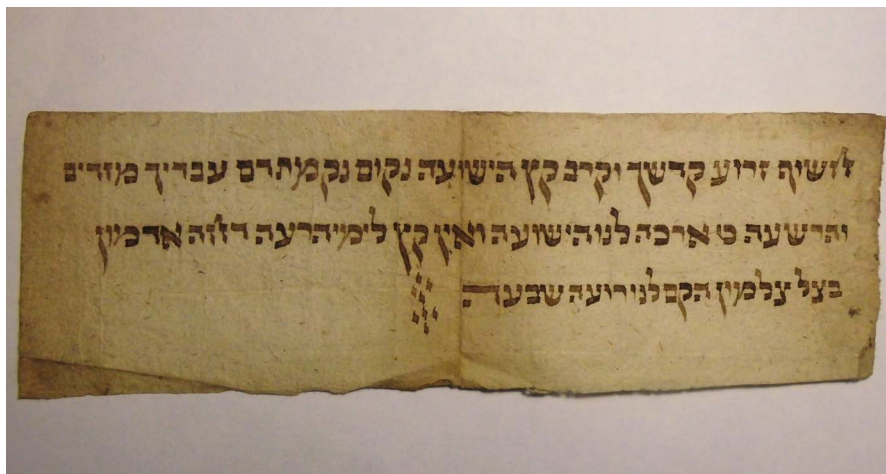 חשוף זרוע קדשך וקרב קץ הישועה נקום נקמת דם עבדיך מזדים
והרשעה כי ארכה לנו הישועה ואין קץ לימי הרעה דחה אדמון
בצל צלמון הקם לנו רועה שבעה